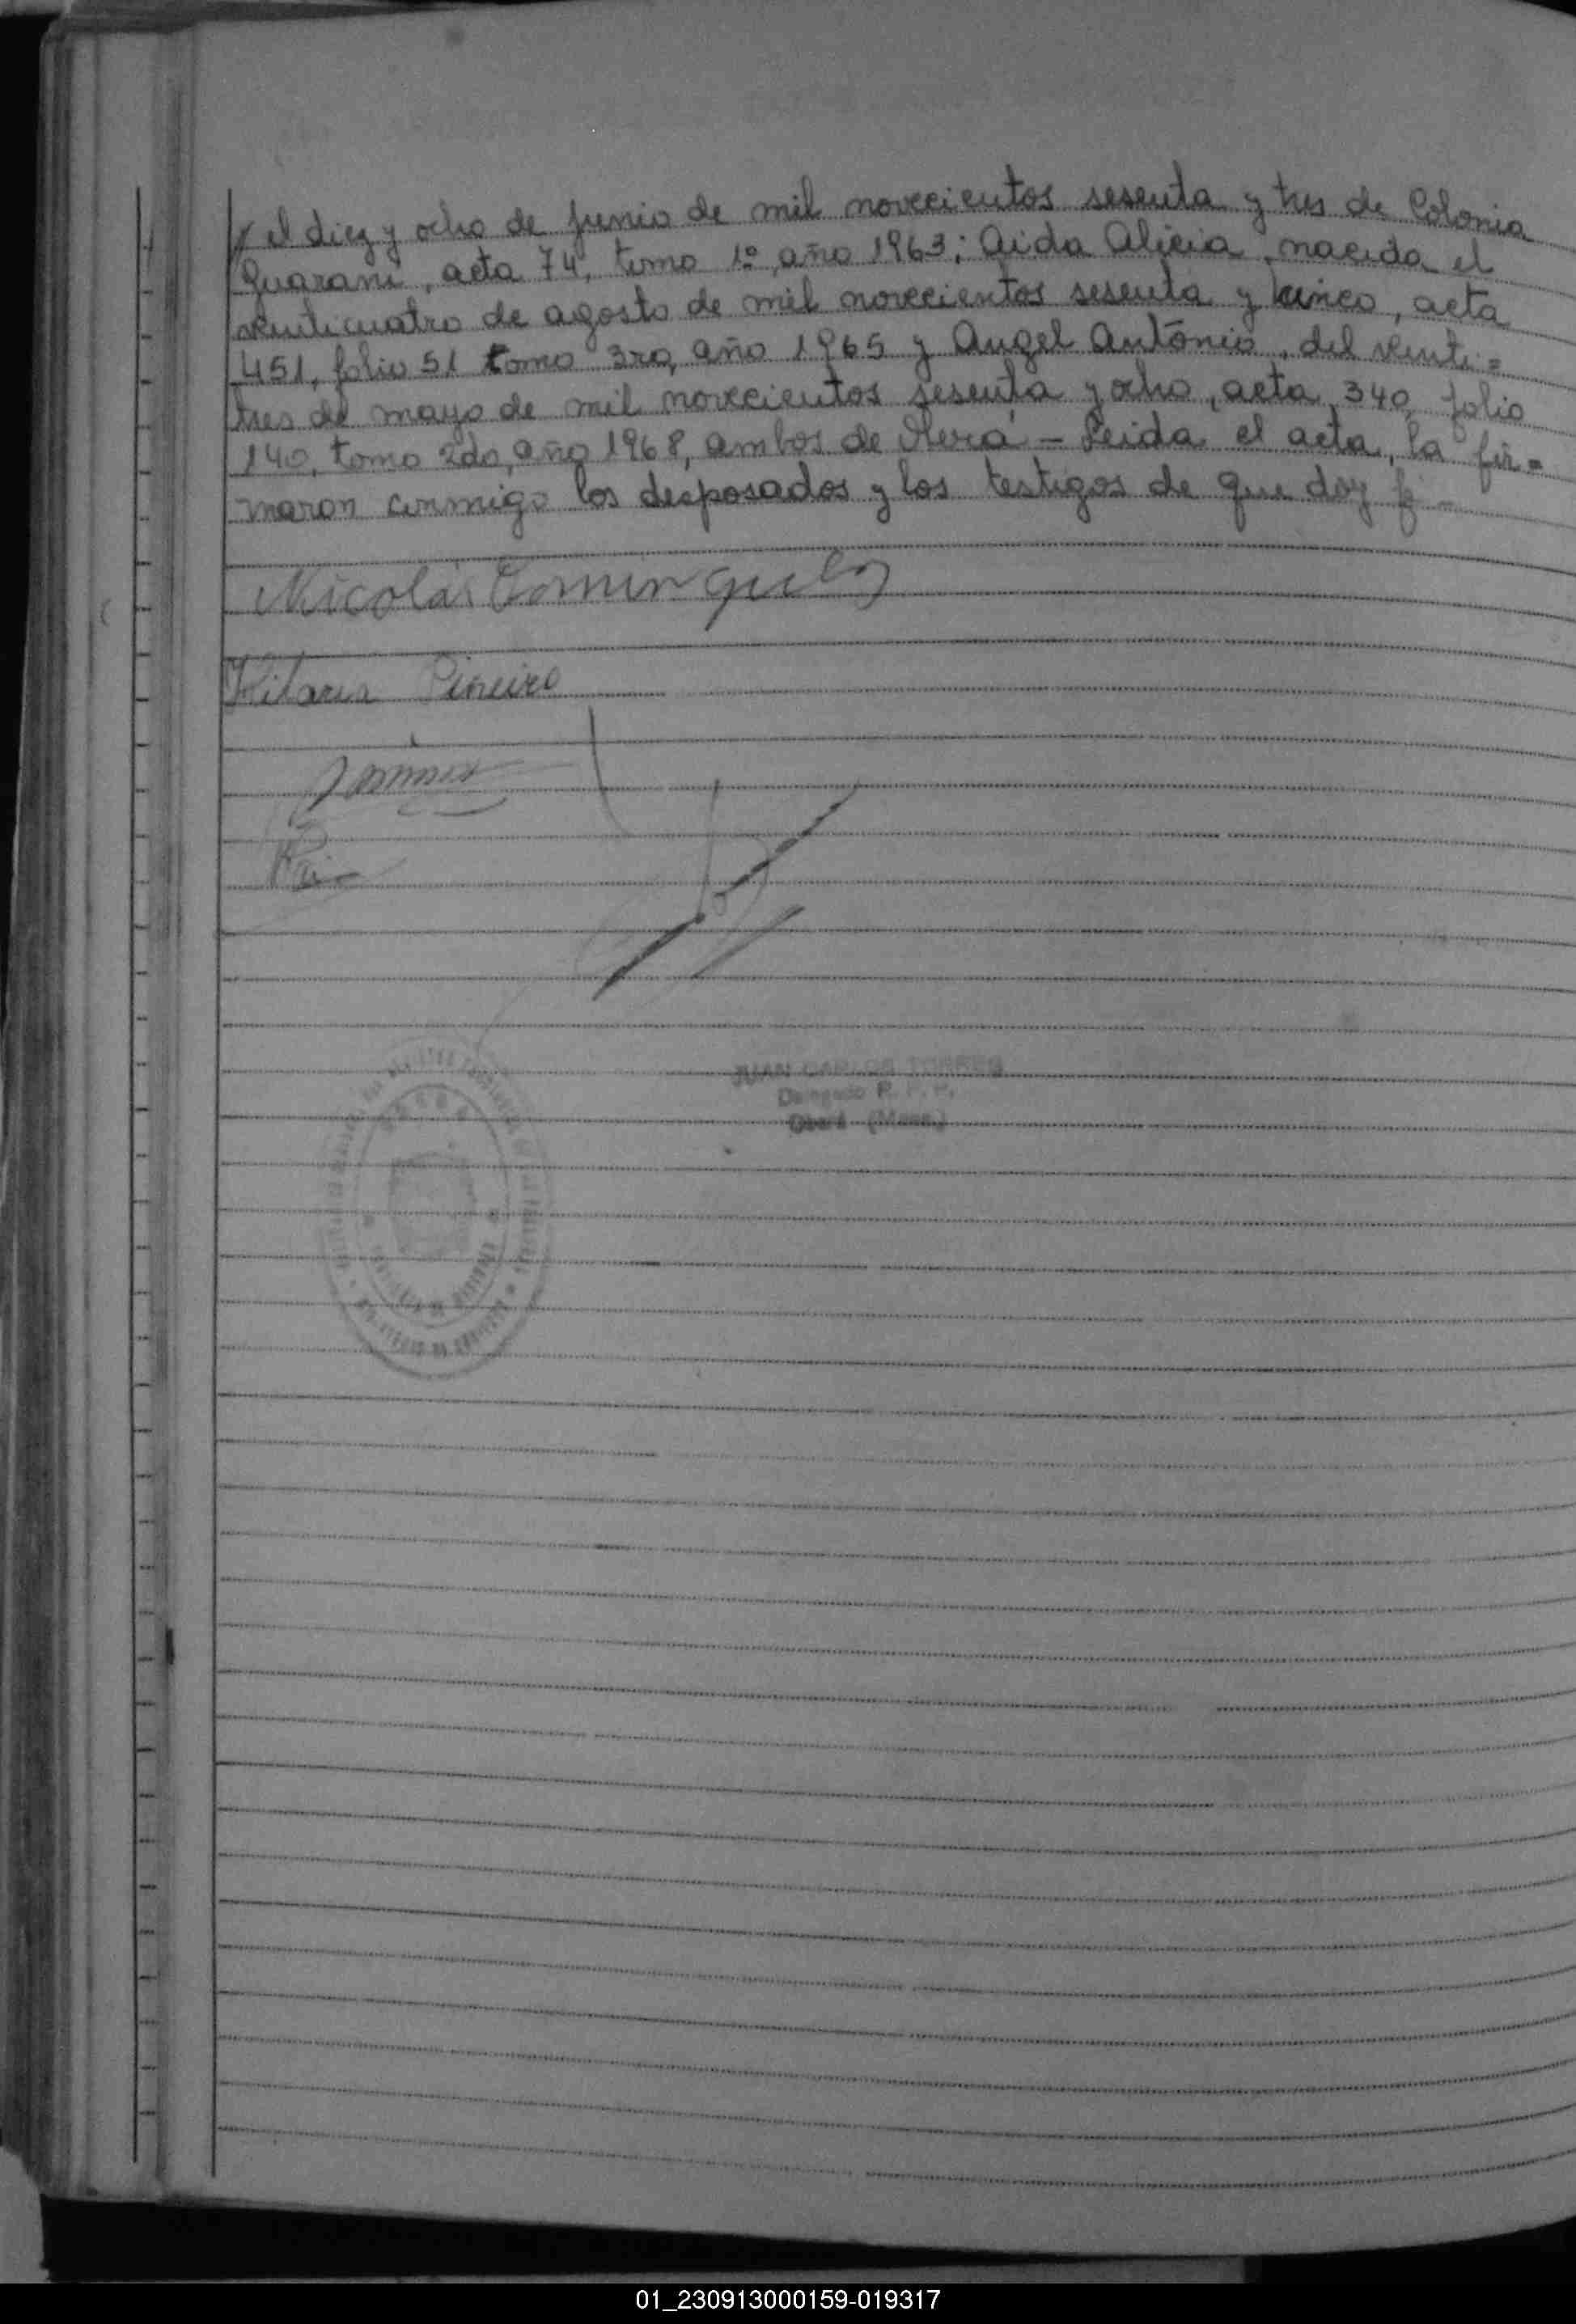 el diez y ocho de junio de mil novecientos sesenta y tres de Colonia
Guaraní, acta 74, tomo 1º, año 1963; Aida Alicia, nacida el
venticuatro de agosto de mil novecientos sesenta y cinco, acta
451, folio 51 tomo 3ro, año 1965 y Angel António, del venti=
tres de mayo de mil novecientos sesenta y ocho, acta 340, folio
140, tomo 2do, año 1968, ambos de Oberá - Leida el acta, la fir=
maron conmigo los desposados y los testigos de que doy fe -
Nicolás Dominguez
Hilaria Pineiro
JUAN CARLOS TORRES
Delegado R. P. P.
Oberá (Mnes.)
01_230913000159-019317